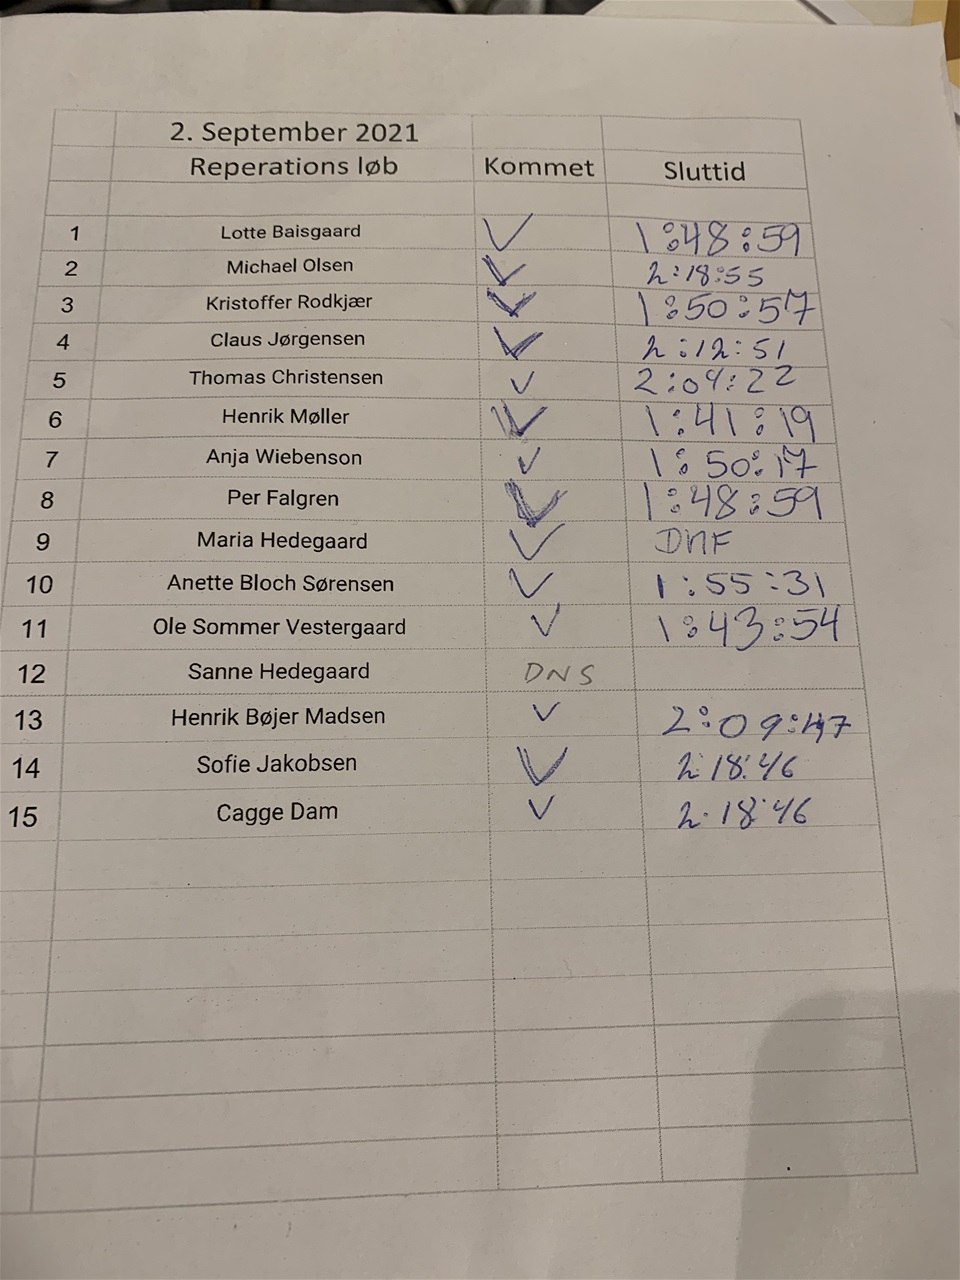 2. September 2021
Reperations løb Kommet Sluttid
1 Lotte Baisgaard ✓ 1:48:59
2 Michael Olsen ✓ 2:18:55
3 Kristoffer Rodkjær ✓ 1:50:57
4 Claus Jørgensen ✓ 2:12:51
5 Thomas Christensen ✓ 2:04:22
6 Henrik Møller ✓ 1:41:19
7 Anja Wiebenson ✓ 1:50:17
8 Per Falgren ✓ 1:48:59
9 Maria Hedegaard ✓ DNF
10 Anette Bloch Sørensen ✓ 1:55:31
11 Ole Sommer Vestergaard ✓ 1:43:54
12 Sanne Hedegaard DNS
13 Henrik Bøjer Madsen ✓ 2:09:47
14 Sofie Jakobsen ✓ 2:18:46
15 Cagge Dam ✓ 2:18:46